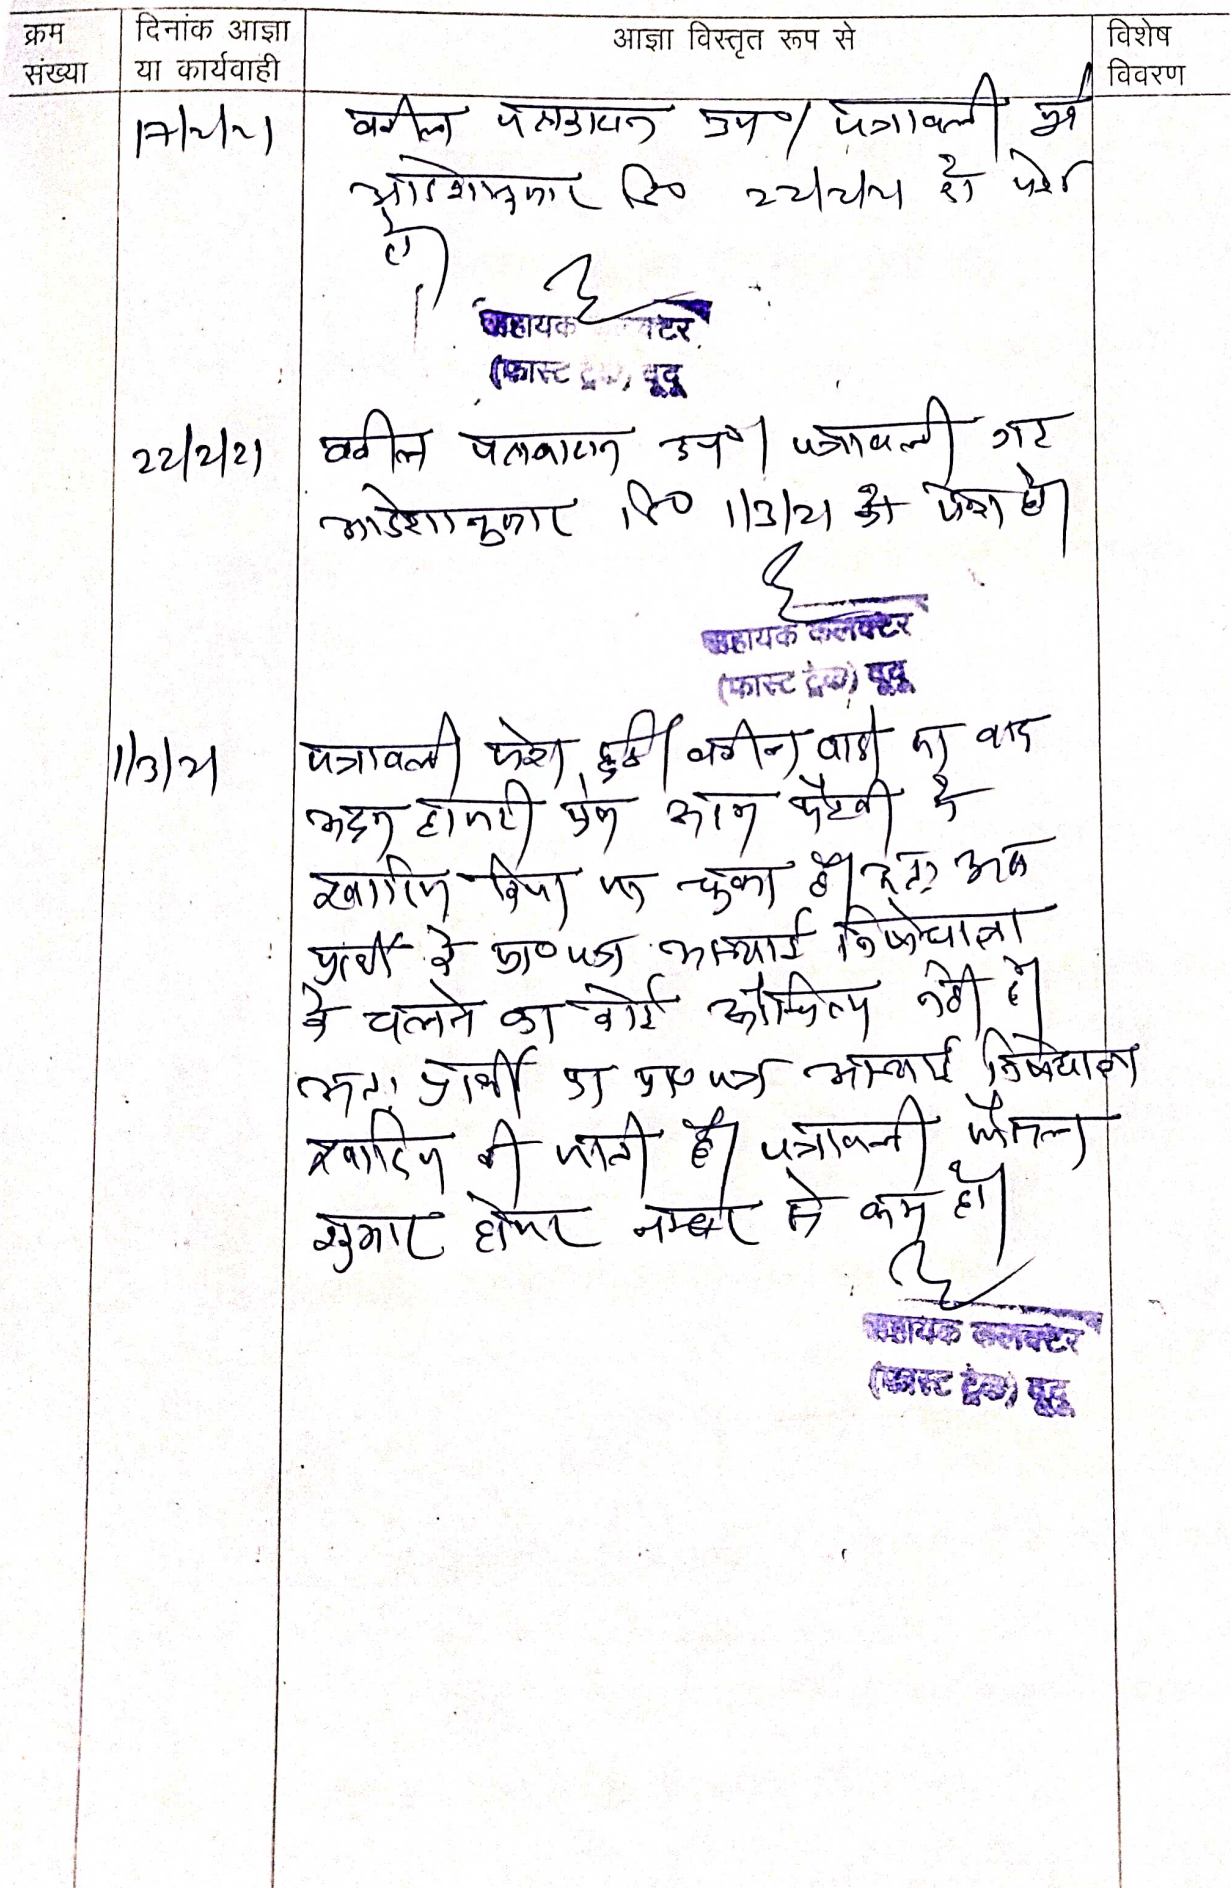 क्रम संख्या
दिनांक आज्ञा या कार्यवाही
आज्ञा विस्तृत रूप से
विशेष विवरण
17/2/21
वकील पक्षकारान उप०। पत्रावली पूर्व
आदेशानुसार दि० 22/2/21 को पेश
हो।
सहायक कलक्टर
(फास्ट ट्रेक) दूदू
22/2/21
वकील पक्षकारान उप०। पत्रावली गत
आदेशानुसार दि० 1/3/21 को पेश हो।
सहायक कलक्टर
(फास्ट ट्रेक) दूदू
1/3/21
पत्रावली पेश हुई। वकील वादी का वाद
अदम हाजरी अदम पैरवी में
खारिज किया जा चुका है। अतः अब
प्रार्थी के प्रा० पत्र अस्थाई निषेधाज्ञा
के चलने का कोई औचित्य नहीं है।
अतः प्रार्थी का प्रा० पत्र अस्थाई निषेधाज्ञा
खारिज की जाती है। पत्रावली फैसल
शुमार होकर नम्बर से कम हो।
सहायक कलक्टर
(फास्ट ट्रेक) दूदू